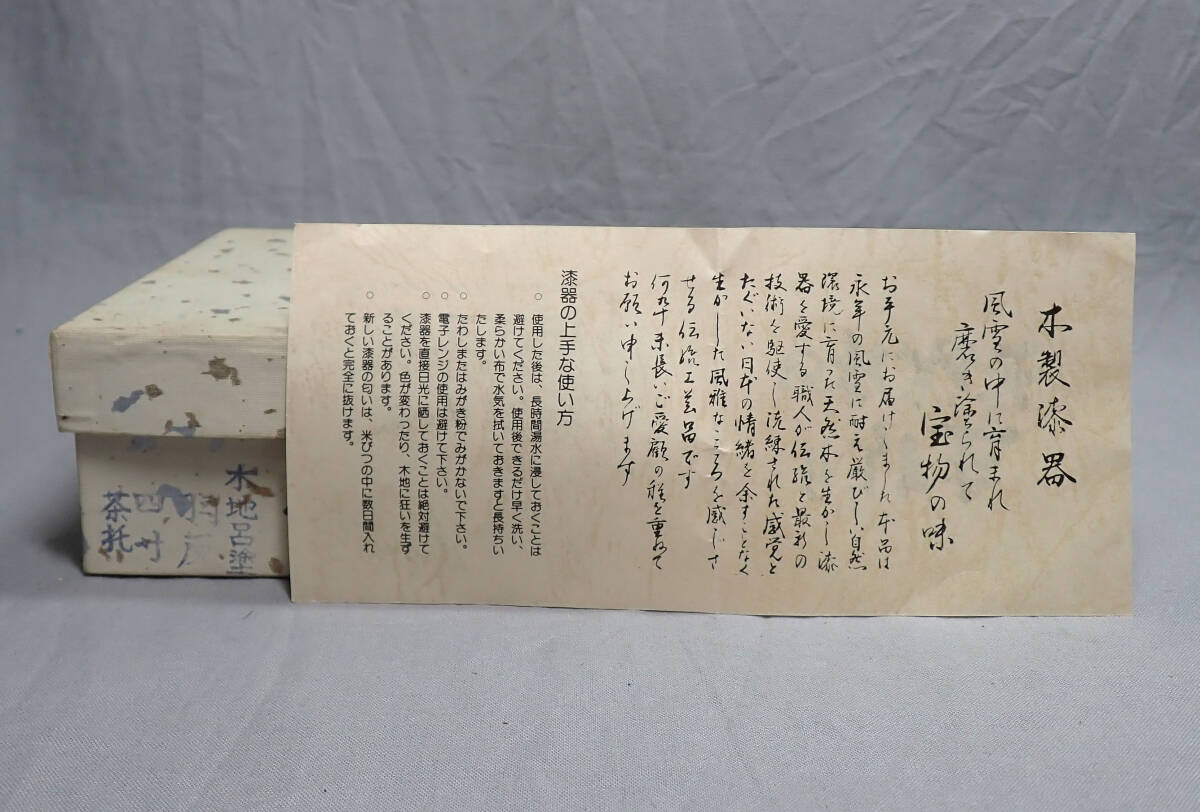 木製漆器
風雪の中に育まれ
磨き塗られて
宝物の味
お手元にお届けしました本品は
永年の風雪に耐え厳びしい自然
環境に育った天然木を生かし漆
器を愛する職人が伝統と最新の
技術を駆使し洗練された感覚と
たぐいない日本の情緒を余すことなく
生かした風雅なこころを感じさ
せる伝統工芸品です
何卒末長いご愛顧の程を重ねて
お願い申し上げます
漆器の上手な使い方
○ 使用した後は、長時間湯水に浸しておくことは
避けてください。使用後できるだけ早く洗い、
柔らかい布で水気を拭いておきますと長持ちい
たします。
○ たわしまたはみがき粉でみがかないで下さい。
○ 電子レンジの使用は避けて下さい。
○ 漆器を直接日光に晒しておくことは絶対避けて
ください。色が変わったり、木地に狂いを生ず
ることがあります。
○ 新しい漆器の匂いは、米びつの中に数日間入れ
ておくと完全に抜けます。
木地呂塗
四寸
茶托